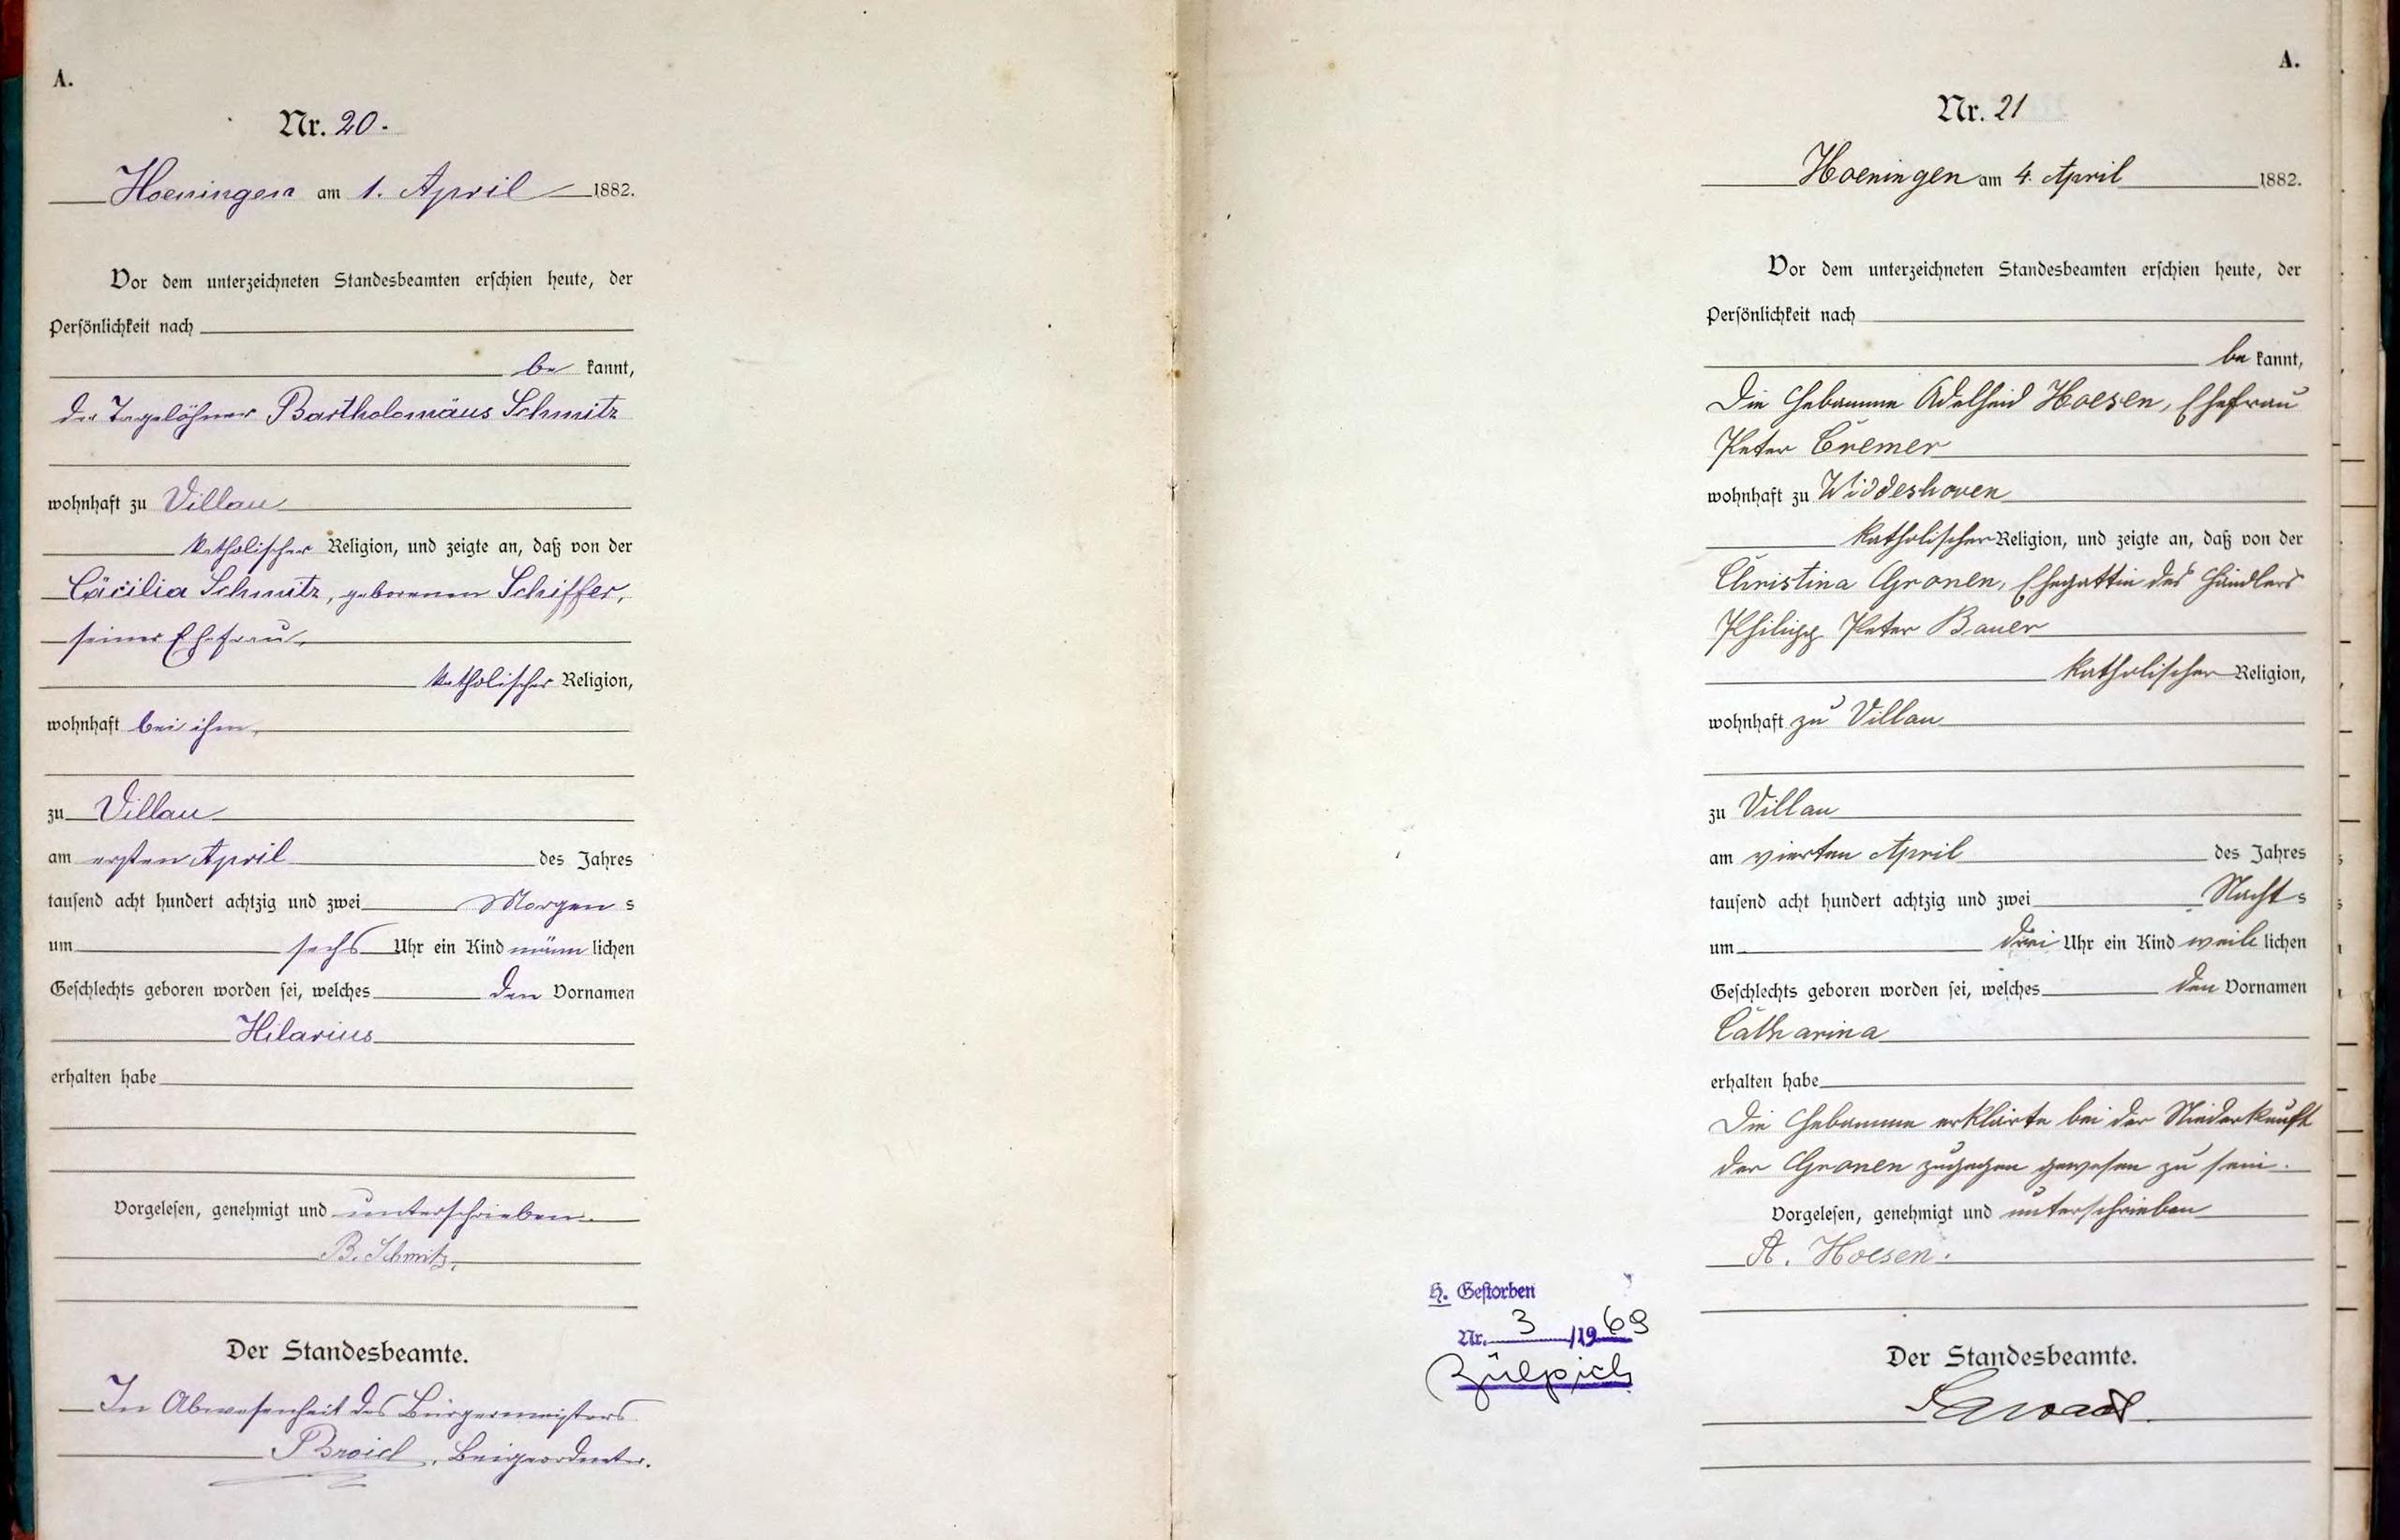 A.
Nr. 20.
Hoeningen am 1. April 1882.
Vor dem unterzeichneten Standesbeamten erschien heute, der
Persönlichkeit nach
be kannt,
der Tagelöhner Bartholomäus Schmitz
wohnhaft zu Villau
katholischer Religion, und zeigte an, daß von der
Cäcilia Schmitz, geborenen Schiffer,
seiner Ehefrau,
katholischer Religion,
wohnhaft bei ihm,
zu Villau
am ersten April des Jahres
tausend acht hundert achtzig und zwei Morgen s
um sechs Uhr ein Kind männ lichen
Geschlechts geboren worden sei, welches den Vornamen
Hilarius
erhalten habe
Vorgelesen, genehmigt und unterschrieben.
B. Schmitz,
Der Standesbeamte.
In Abwesenheit des Bürgermeisters
Broich, Beigeordneter.
A.
Nr. 21
Hoeningen am 4. April 1882.
Vor dem unterzeichneten Standesbeamten erschien heute, der
Persönlichkeit nach
be kannt,
die Hebamme Adelheid Hoesen, Ehefrau
Peter Cremer
wohnhaft zu Widdeshoven
katholischer Religion, und zeigte an, daß von der
Christina Gronen, Ehegattin des Händlers
Philipp Peter Bauer
katholischer Religion,
wohnhaft zu Villau
zu Villau
am vierten April des Jahres
tausend acht hundert achtzig und zwei Nacht s
um drei Uhr ein Kind weib lichen
Geschlechts geboren worden sei, welches den Vornamen
Catharina
erhalten habe
Die Hebamme erklärte bei der Niederkunft
der Gronen zugegen gewesen zu sein.
Vorgelesen, genehmigt und unterschrieben
A. Hoesen.
H. Gestorben
Nr. 3 /1969
Zülpich
Der Standesbeamte.